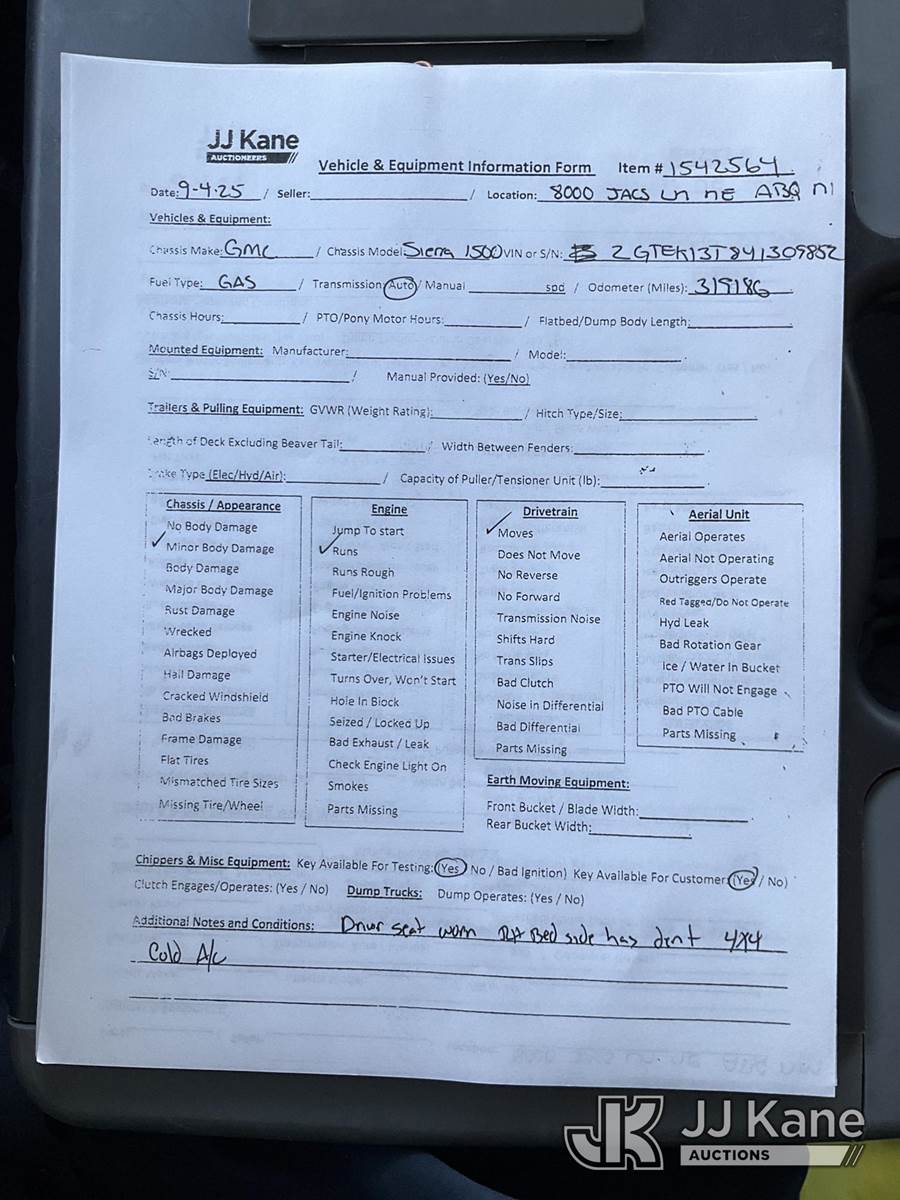 JJ Kane
AUCTIONEERS
Vehicle & Equipment Information Form Item # 1542564
Date: 9-4-25 / Seller: / Location: 8000 JACS Ln NE ABQ
Vehicles & Equipment:
Chassis Make: GMC / Chassis Model: Sierra 1500 VIN or S/N: 2GTEK13T841305852
Fuel Type: GAS / Transmission: Auto / Manual spd / Odometer (Miles): 319186
Chassis Hours: / PTO/Pony Motor Hours: / Flatbed/Dump Body Length:
Mounted Equipment: Manufacturer: / Model:
S/N: / Manual Provided: (Yes/No)
Trailers & Pulling Equipment: GVWR (Weight Rating): / Hitch Type/Size:
Length of Deck Excluding Beaver Tail: / Width Between Fenders:
Brake Type (Elec/Hyd/Air): / Capacity of Puller/Tensioner Unit (lb):
Chassis / Appearance
No Body Damage
Minor Body Damage
Body Damage
Major Body Damage
Rust Damage
Wrecked
Airbags Deployed
Hail Damage
Cracked Windshield
Bad Brakes
Frame Damage
Flat Tires
Mismatched Tire Sizes
Missing Tire/Wheel
Engine
Jump To start
Runs
Runs Rough
Fuel/Ignition Problems
Engine Noise
Engine Knock
Starter/Electrical Issues
Turns Over, Won't Start
Hole In Block
Seized / Locked Up
Bad Exhaust / Leak
Check Engine Light On
Smokes
Parts Missing
Drivetrain
Moves
Does Not Move
No Reverse
No Forward
Transmission Noise
Shifts Hard
Trans Slips
Bad Clutch
Noise in Differential
Bad Differential
Parts Missing
Aerial Unit
Aerial Operates
Aerial Not Operating
Outriggers Operate
Red Tagged/Do Not Operate
Hyd Leak
Bad Rotation Gear
Ice / Water In Bucket
PTO Will Not Engage
Bad PTO Cable
Parts Missing
Earth Moving Equipment:
Front Bucket / Blade Width:
Rear Bucket Width:
Chippers & Misc Equipment: Key Available For Testing: (Yes / No / Bad Ignition) Key Available For Customer: (Yes / No)
Clutch Engages/Operates: (Yes / No) Dump Trucks: Dump Operates: (Yes / No)
Additional Notes and Conditions: Driver seat worn Bed side has dent 4x4
Cold A/c
JK JJ Kane
AUCTIONS